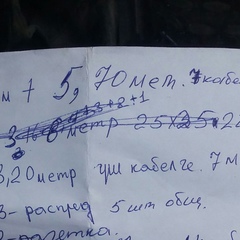 м + 5,70 мет. 1 кабе
+3+2+1
3 метр 25x25x2
3,20 метр үш кабелге. 7 м
3- распред 5 шт общ.
розетка.